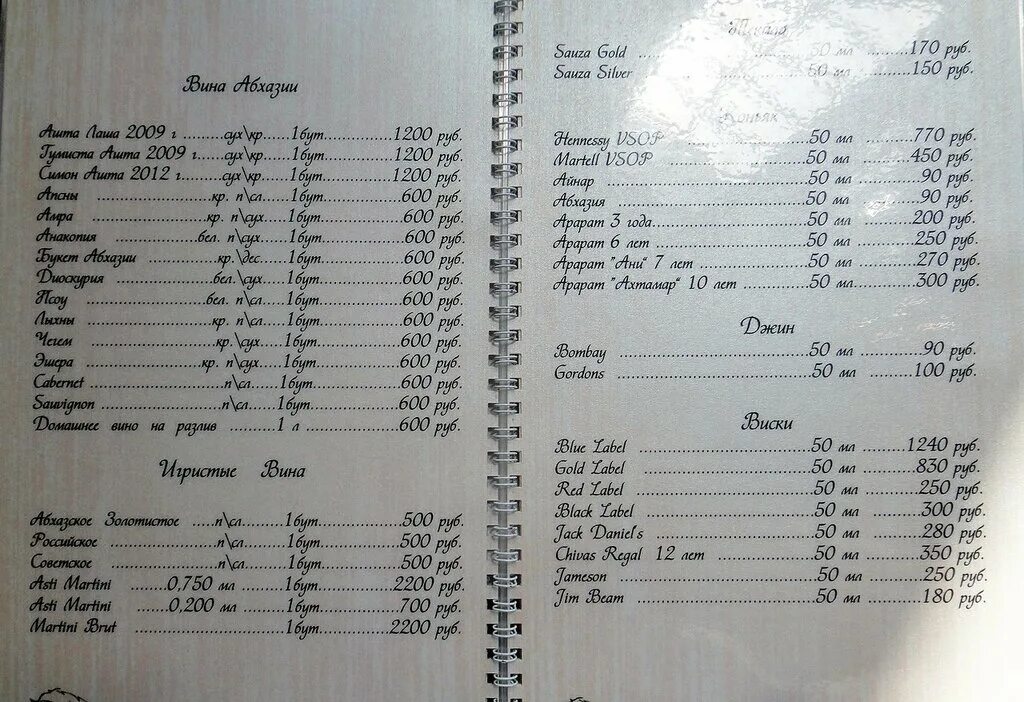 Вина Абхазии
Ашта Лаша 2009 г ........сух\кр......1бут.............1200 руб.
Гумиста Ашта 2009 г......сух\кр......1бут.............1200 руб.
Симон Ашта 2012 г.......сух\кр......1бут.............1200 руб.
Апсны ......................кр. п\сл......1бут.............600 руб.
Амра ......................кр. п\сух......1бут.............600 руб.
Анакопия ................бел. п\сух......1бут.............600 руб.
Букет Абхазии .............кр.\дес......1бут.............600 руб.
Диоскурия ...................бел.\сух......1бут.............600 руб.
Псоу .......................бел. п\сл......1бут.............600 руб.
Лыхны .....................кр. п\сл......1бут.............600 руб.
Чегем .........................кр.\сух......1бут.............600 руб.
Эшера .....................кр. п\сух......1бут.............600 руб.
Cabernet .......................п\сл......1бут.............600 руб.
Sauvignon .....................п\сл......1бут.............600 руб.
Домашнее вино на разлив .........1 л ....................600 руб.
Игристые Вина
Абхазское Золотистое .....п\сл......1бут.............500 руб.
Российское .....................п\сл......1бут.............500 руб.
Советское .....................п\сл......1бут.............500 руб.
Asti Martini ......0,750 мл ........1бут.............2200 руб.
Asti Martini ......0,200 мл ........1бут.............700 руб.
Martini Brut ............................1бут.............2200 руб.
Текила
Sauza Gold ....................50 мл .........170 руб.
Sauza Silver ....................50 мл .........150 руб.
Коньяк
Hennessy VSOP ....................50 мл .........770 руб.
Martell VSOP ....................50 мл .........450 руб.
Айнар ..............................50 мл .........90 руб.
Абхазия ..............................50 мл .........90 руб.
Арарат 3 года.......................50 мл .........200 руб.
Арарат 6 лет .......................50 мл .........250 руб.
Арарат "Ани" 7 лет ................50 мл .........270 руб.
Арарат "Ахтамар" 10 лет ...........50 мл .........300 руб.
Джин
Bombay ..............................50 мл .........90 руб.
Gordons ..............................50 мл .........100 руб.
Виски
Blue Label ..........................50 мл .........1240 руб.
Gold Label ..........................50 мл .........830 руб.
Red Label ..........................50 мл .........250 руб.
Black Label ..........................50 мл .........300 руб.
Jack Daniel's ........................50 мл .........280 руб.
Chivas Regal 12 лет ................50 мл .........350 руб.
Jameson ..............................50 мл .........250 руб.
Jim Beam ............................50 мл .........180 руб.